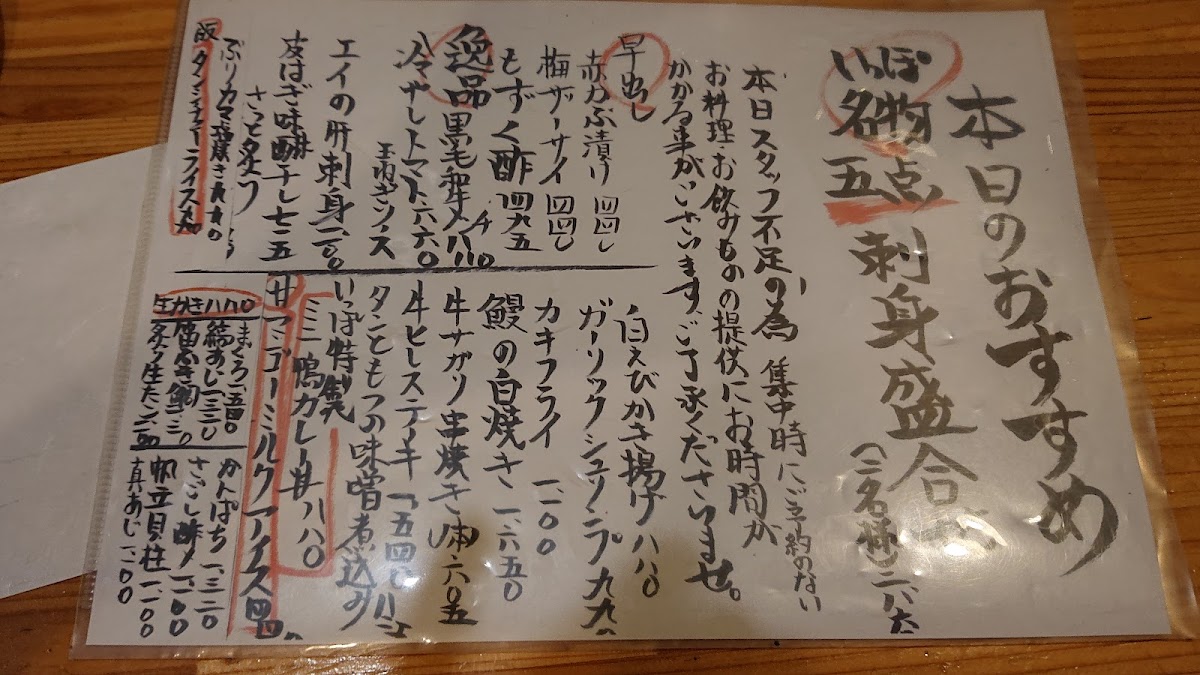 本日のおすすめ
いっぽ名物
五点刺身盛合せ
(二名様)
本日スタッフ不足の為 集中時にご予約のない
お料理・お飲みものの提供にお時間が
かかる事がございます。ご了承くださいませ。
早出し
赤かぶ漬け 四四〇
梅ザーサイ 四四〇
もずく酢 四九五
逸品
黒毛和牛メンチ
冷やしトマト 六六〇
玉ねぎソース
エイの肝刺身
皮はぎ味醂干し 七一五
さっと炙り
ぶりカマ塩焼き 九九〇
飯
白えびかき揚げ 八八〇
ガーリックシュリンプ 九九〇
カキフライ 一一〇〇
鰻の白焼き 一六五〇
牛サガリ串焼き(一本) 六〇五
牛ヒレステーキ 一五四〇
タンともつの味噌煮込み
いっぽ特製
ミニ鴨カレー丼 八八〇
甘 マンゴーミルクアイス 四四〇
生かき 八八〇
まぐろ 一五四〇
縞あじ 一三二〇
炙り生たこ
かんぱち 一三二〇
帆立貝柱 一一〇〇
真あじ 一一〇〇